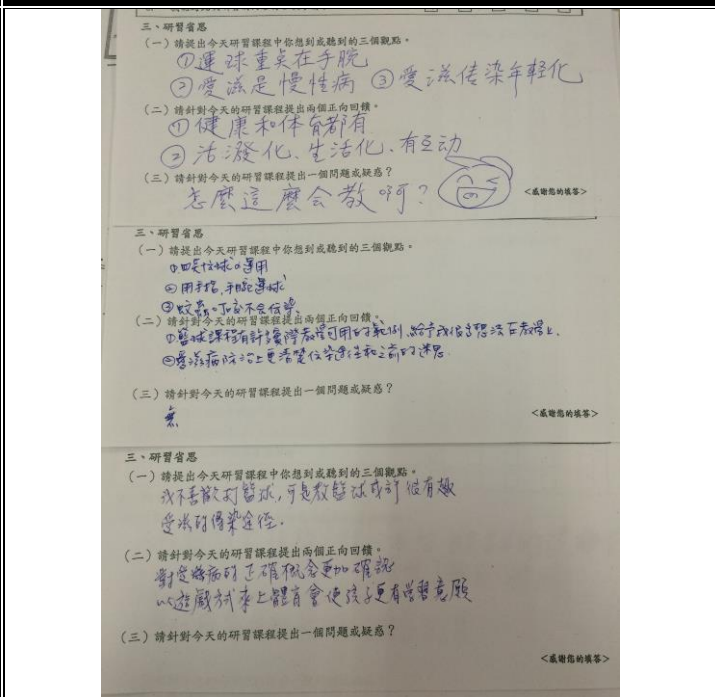 三、研習省思
(一)請提出今天研習課程中你想到或聽到的三個觀點。
①運球重点在手腕
②愛滋是慢性病 ③愛滋传染年輕化
(二)請針對今天的研習課程提出兩個正向回饋。
①健康和体育都有
②活潑化、生活化、有互动
(三)請針對今天的研習課程提出一個問題或疑惑?
怎麼這麼会教啊?
<感謝您的填答>
三、研習省思
(一)請提出今天研習課程中你想到或聽到的三個觀點。
運用
②用手指、手腕運球
③蚊蟲叮咬不会伝染、
(二)請針對今天的研習課程提出兩個正向回饋。
①籃球課程有許多實際教學可用的範例,給予我很多想法在教學上.
②愛滋病防治上更清楚伝染途徑和之前的迷思.
(三)請針對今天的研習課程提出一個問題或疑惑?
無
<感謝您的填答>
三、研習省思
(一)請提出今天研習課程中你想到或聽到的三個觀點。
我不喜歡打籃球,可是教籃球或許很有趣
愛滋的傳染途徑.
(二)請針對今天的研習課程提出兩個正向回饋。
對愛滋病的正確概念更加確認
以遊戲方式來上體育會使孩子更有學習意願
(三)請針對今天的研習課程提出一個問題或疑惑?
<感謝您的填答>